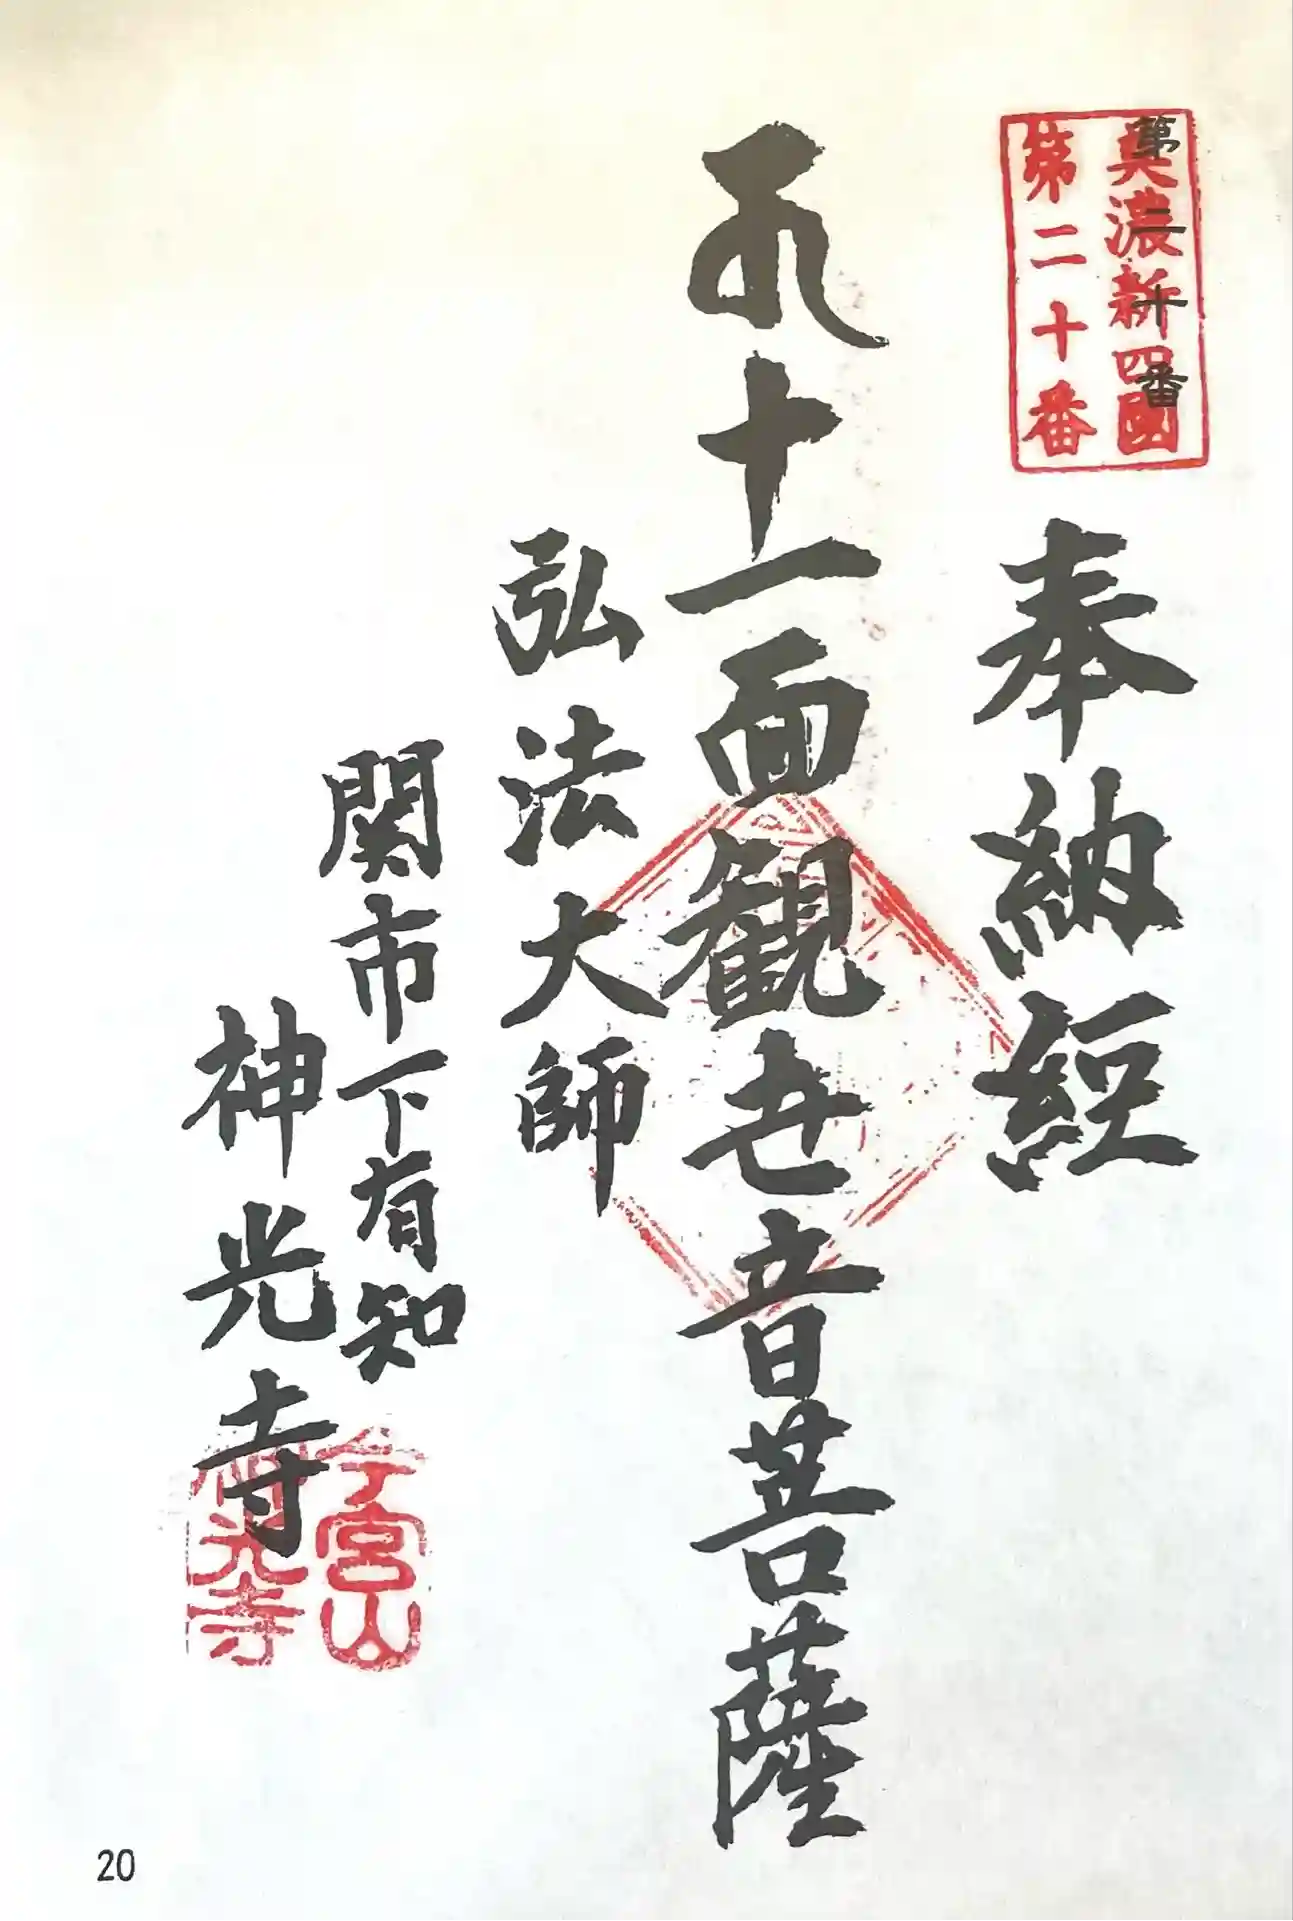 第二十番
美濃新四國
第二十番
奉納経
十一面観世音菩薩
弘法大師
関市下有知
神光寺
今宮山
神光寺
20